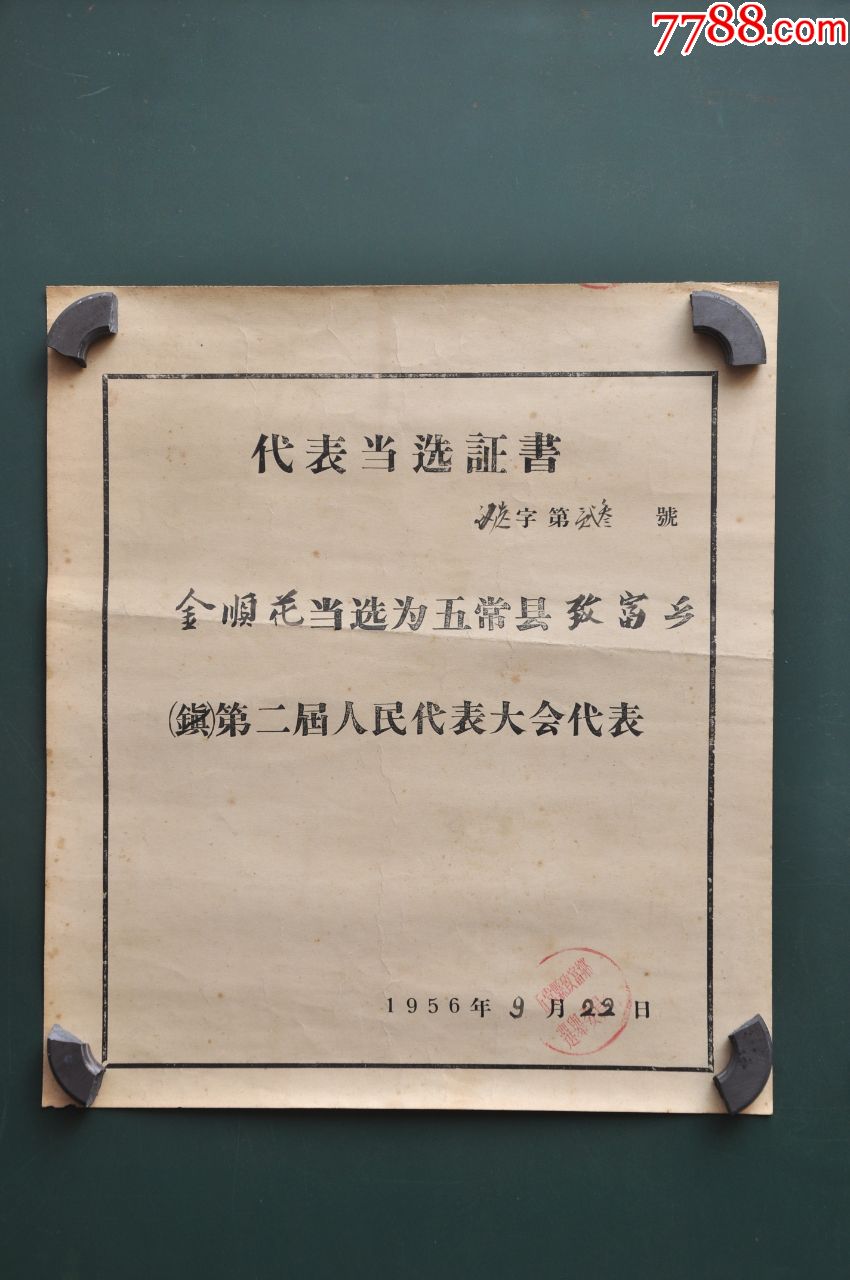 7788.com
代表当选証書
选字第弍叁 號
金順花当选为五常县致富乡
(鎭)第二屆人民代表大会代表
1956年9月22日